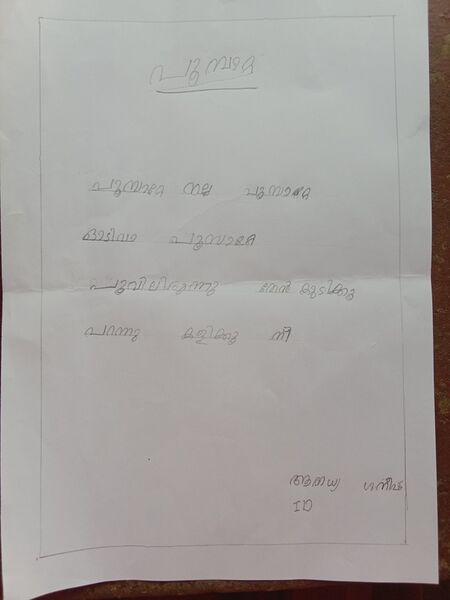 പൂമ്പാറ്റ
പൂമ്പാറ്റേ നല്ല പൂമ്പാറ്റേ
ഓടിവാ പൂമ്പാറ്റേ
പൂവിലിരുന്നു തേൻ കുടിക്കൂ
പറന്നു കളിക്കൂ നീ
ആരാധ്യ
ID